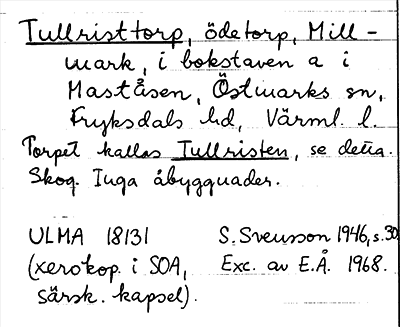 Tullristtorp, ödetorp, Mill-
mark, i bokstaven a i
Maståsen, Östmarks sn,
Fryksdals hd, Värml. l.
Torpet kallas Tullristen, se detta.
Skog. Inga åbyggnader.
ULMA 18131 S. Svensson 1946, s. 30
(xerokop. i SOA, Exc. av E.Å. 1968.
särsk. kapsel).